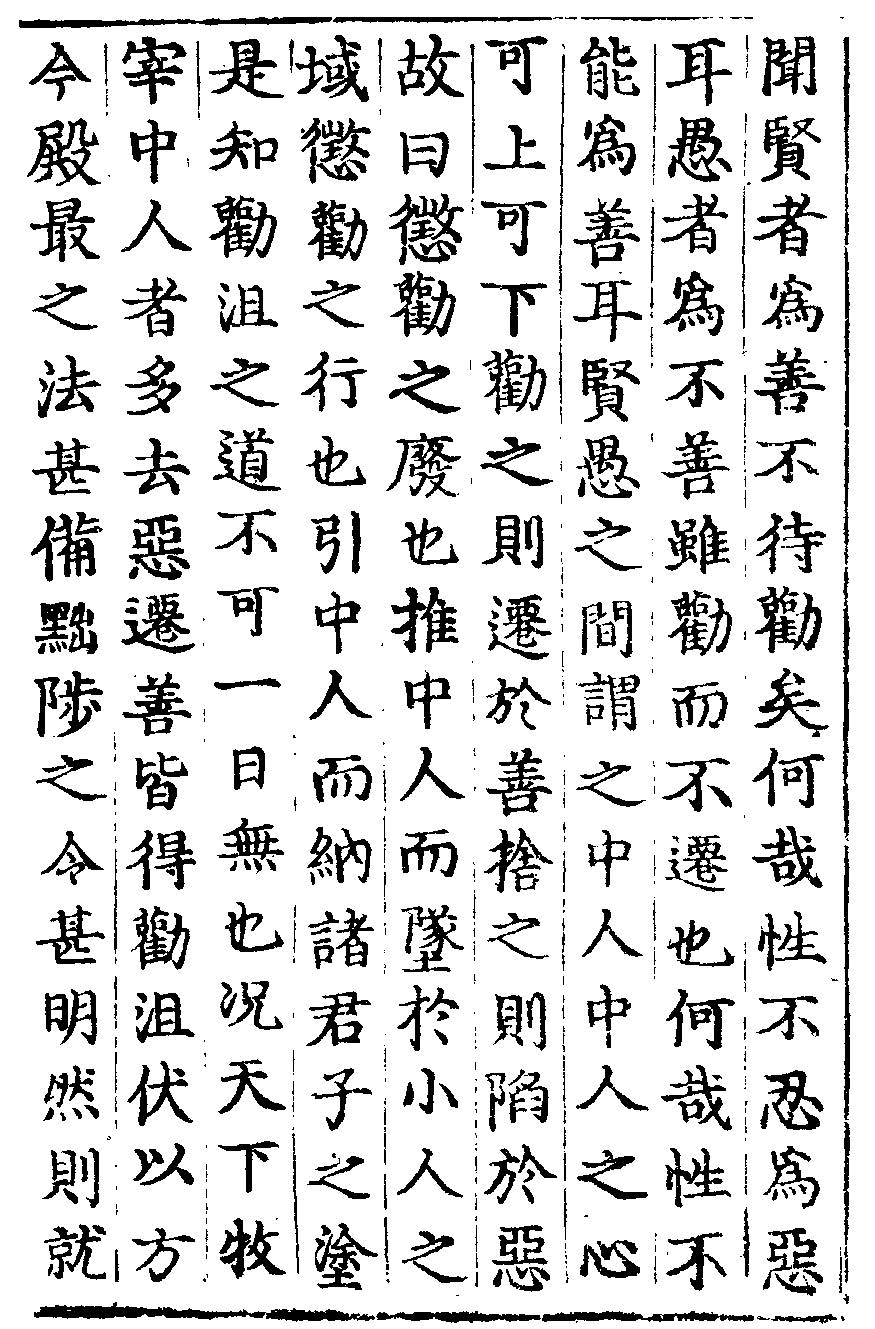 聞賢者爲善不待勸矣何哉性不忍爲惡
耳愚者爲不善雖勸而不遷也何哉性不
能爲善耳賢愚之間謂之中人中人之心
可上可下勸之則遷於善捨之則陷於惡
故曰懲勸之廢也推中人而墜於小人之
域懲勸之行也引中人而納諸君子之塗
是知勸沮之道不可一日無也况天下牧
宰中人者多去惡遷善皆得勸沮伏以方
今殿最之法甚備黜陟之令甚明然則就